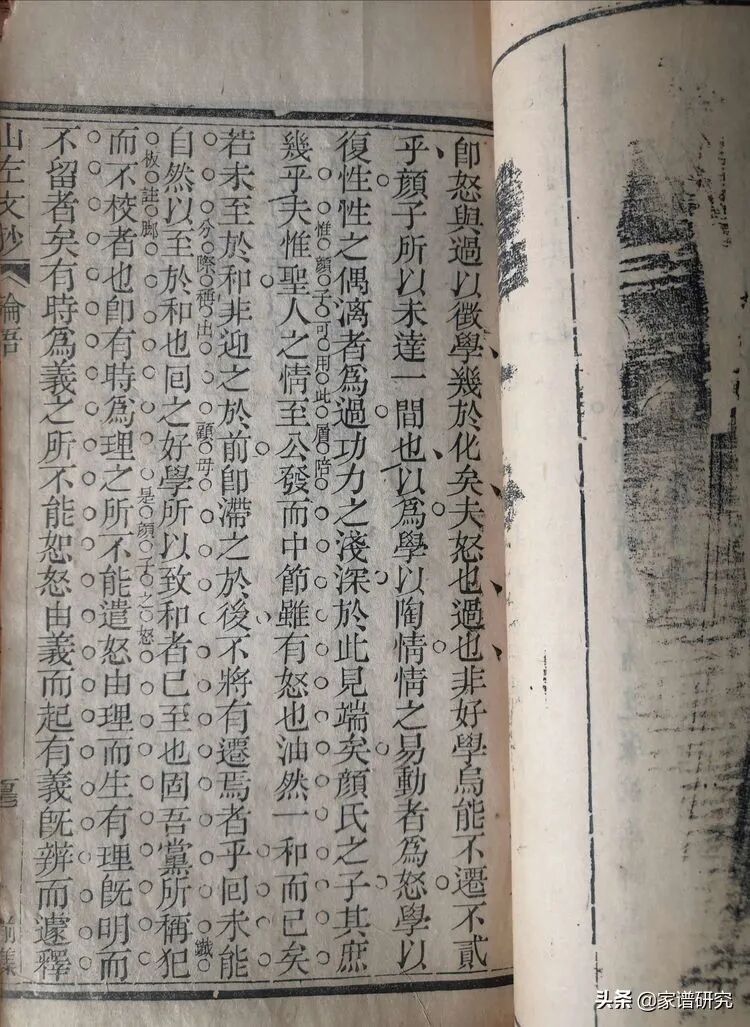 卽怒與過以徵學幾於化矣夫怒也過也非好學烏能不遷不貳
乎顏子所以未達一間也以爲學以陶情情之易動者爲怒學以
復性性之偶漓者爲過功力之淺深於此見端矣顏氏之子其庶
惟顏子可用此層陪
幾乎夫惟聖人之情至公發而中節雖有怒也油然一和而已矣
若未至於和非迎之於前卽滯之於後不將有遷焉者乎回未能
分際稱出 顧毋 纖
自然以至於和也回之好學所以致和者已至也固吾黨所稱犯
註腳 是顏子之怒
而不校者也卽有時爲理之所不能遣怒由理而生有理旣明而
不留者矣有時爲義之所不能恕怒由義而起有義旣辨而遽釋
山左文抄 論語 前集
头条 @家谱研究